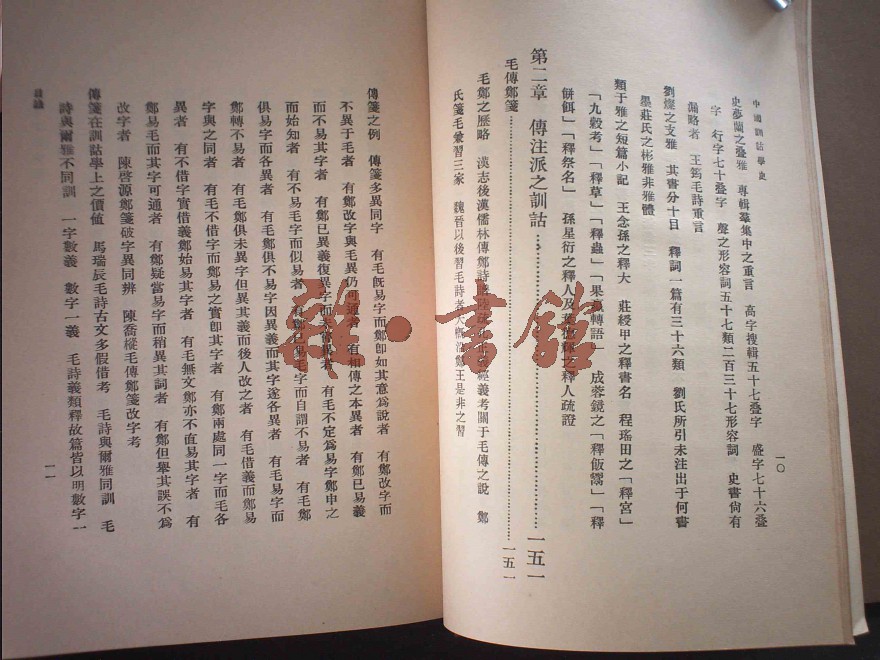 中國訓詁學史
一〇
史夢蘭之疊雅 專輯羣集中之重言 高字搜輯五十七疊字 盛字七十六疊
字 行字七十疊字 聲之形容詞五十七類二百三十七形容詞 史書尙有
漏略者 王筠毛詩重言
劉燦之支雅 其書分十目 釋詞一篇有三十六類 劉氏所引未注出于何書
墨莊氏之彬雅非雅體
類于雅之短篇小記 王念孫之釋大 莊綬甲之釋書名 程瑤田之「釋宮」
「九穀考」「釋草」「釋蟲」「果臝轉語」 成蓉鏡之「釋飯餰」「釋
餅餌」「釋祭名」 孫星衍之釋人及葉德輝之釋人疏證
第二章 傳注派之訓詁 一五一
毛傳鄭箋 一五一
毛鄭之歷略 漢志後漢儒林傳鄭詩 經義考關于毛傳之說 鄭
氏箋毛兼習三家 魏晉以後習毛詩者 鄭王是非之習
傳箋之例 傳箋多異同字 有毛旣易字而鄭卽如其意爲說者 有鄭改字而
不異于毛者 有鄭改字與毛異仍可通者 有相傳之本異者 有鄭已易義
而不易其字者 有鄭已異義復異字而 有毛不定爲易字鄭申之
而始知者 有不易毛字而似易者 有鄭已易毛字而自謂不易者 有毛鄭
俱易字而各異者 有毛鄭俱不易字因異義而其字遂各異者 有毛易字而
鄭轉不易者 有毛鄭俱未異字但異其義而後人改之者 有毛借義而鄭易
字與之同者 有毛不借字而鄭易之實卽其字者 有鄭兩處同一字而毛各
異者 有不借字實借義鄭始易其字者 有毛無文鄭亦不直易其字者 有
鄭易毛而其字可通者 有鄭疑當易字而稍異其詞者 有鄭但舉其誤不爲
改字者 陳啓源鄭箋破字異同辨 陳喬樅毛傳鄭箋改字考
傳箋在訓詁學上之價値 馬瑞辰毛詩古文多假借考 毛詩與爾雅同訓 毛
詩與爾雅不同訓 一字數義 數字一義 毛詩義類釋故篇皆以明數字一
目錄
一一
書館